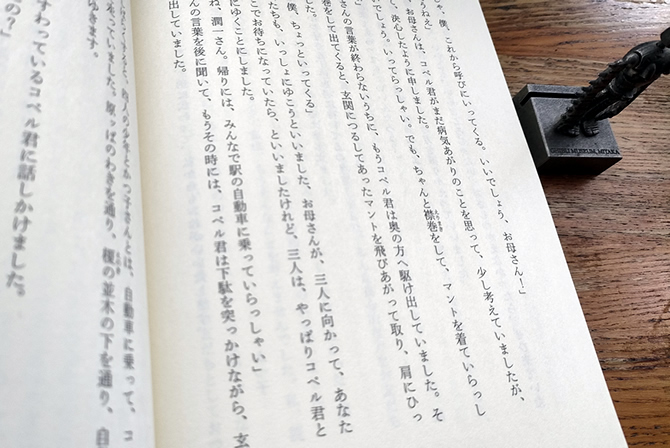 や、僕、これから呼びにいってくる。いいでしょう、お母さん!」
うねえ」
お母さんは、コペル君がまだ病気あがりのことを思って、少し考えていましたが、
、決心したように申しました。
でしょう。いってらっしゃい。でも、ちゃんと襟巻をして、マントを着ていらっし
」
さんの言葉が終わらないうちに、もうコペル君は奥の方へ駆け出していました。そ
巻をして出てくると、玄関につるしてあったマントを飛びあがって取り、肩にひっ
ました。
僕、ちょっといってくる」
たちも、いっしょにゆこうといいました。お母さんが、三人に向かって、あなた
こでお待ちになっていたら、といいましたけれど、三人は、やっぱりコペル君と
にゆくことにしました。
ね、潤一さん。帰りには、みんなで駅の自動車に乗っていらっしゃい」
んの言葉を後に聞いて、もうその時には、コペル君は下駄を突っかけながら、玄
出していました。
人の少年とかつ子さんとは、自動車に乗って、コ
えていました。原っぱのわきを通り、榎の並木の下を通り、自
ゆきます。
すわっているコペル君に話しかけました。
の?」
GHIBLI MUSEUM, MITAKA